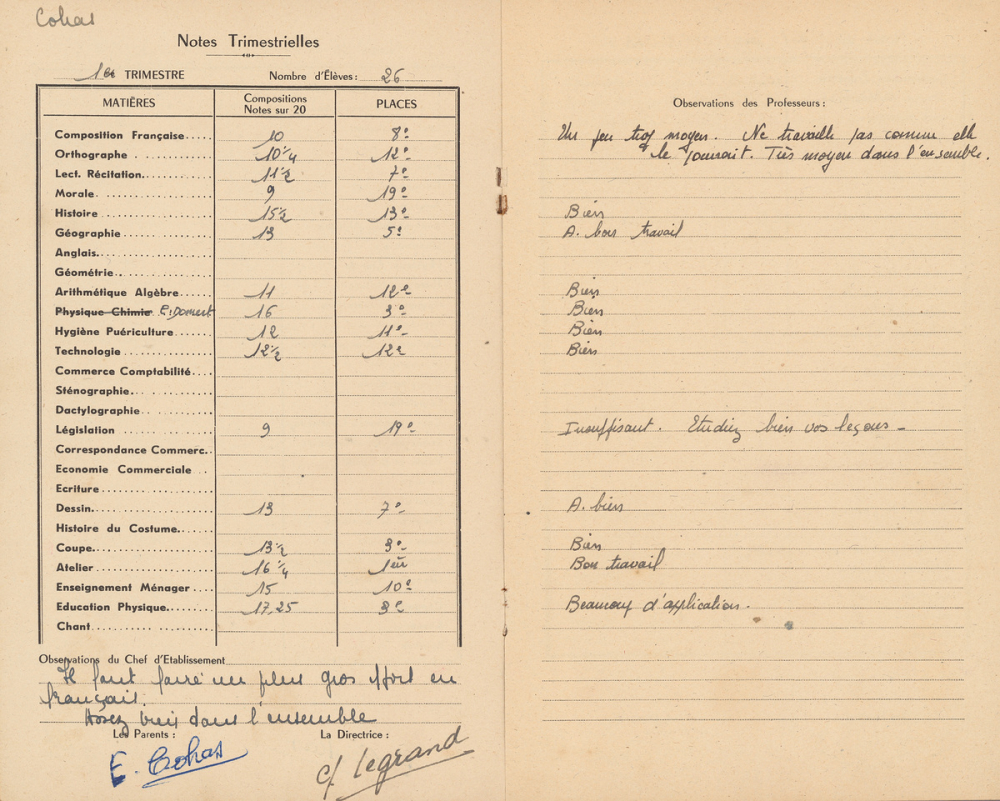 Cohas
Notes Trimestrielles
1er TRIMESTRE Nombre d'Élèves : 26
MATIÈRES Compositions Notes sur 20 PLACES
Composition Française..... 10 8e
Orthographe ............ 10 1/4 12e
Lect. Récitation.......... 11 1/2 7e
Morale................. 9 19e
Histoire ................ 15 1/2 13e
Géographie ............. 13 5e
Anglais.................
Géométrie...............
Arithmétique Algèbre...... 11 12e
Physique Chimie E. Domest 16 3e
Hygiène Puériculture....... 12 11e
Technologie ............. 12 1/2 12e
Commerce Comptabilité....
Sténographie.............
Dactylographie ..........
Législation .............. 9 19e
Correspondance Commerc..
Economie Commerciale ..
Ecriture.................
Dessin.................. 13 7e
Histoire du Costume......
Coupe.................. 13 1/2 3e
Atelier.................. 16 1/4 1er
Enseignement Ménager.... 15 10e
Education Physique........ 17,25 3e
Chant...................
Observations du Chef d'Etablissement
Il faut faire un plus gros effort en
français.
Assez bien dans l'ensemble
Les Parents : La Directrice :
E. Cohas Legrand
Observations des Professeurs :
Un peu trop moyen. Ne travaille pas comme elle
le pourrait. Très moyen dans l'ensemble.
Bien
A. bon travail
Bien
Bien
Bien
Bien
Insuffisant. Etudiez bien vos leçons -
A. bien
Bien
Bon travail
Beaucoup d'application.